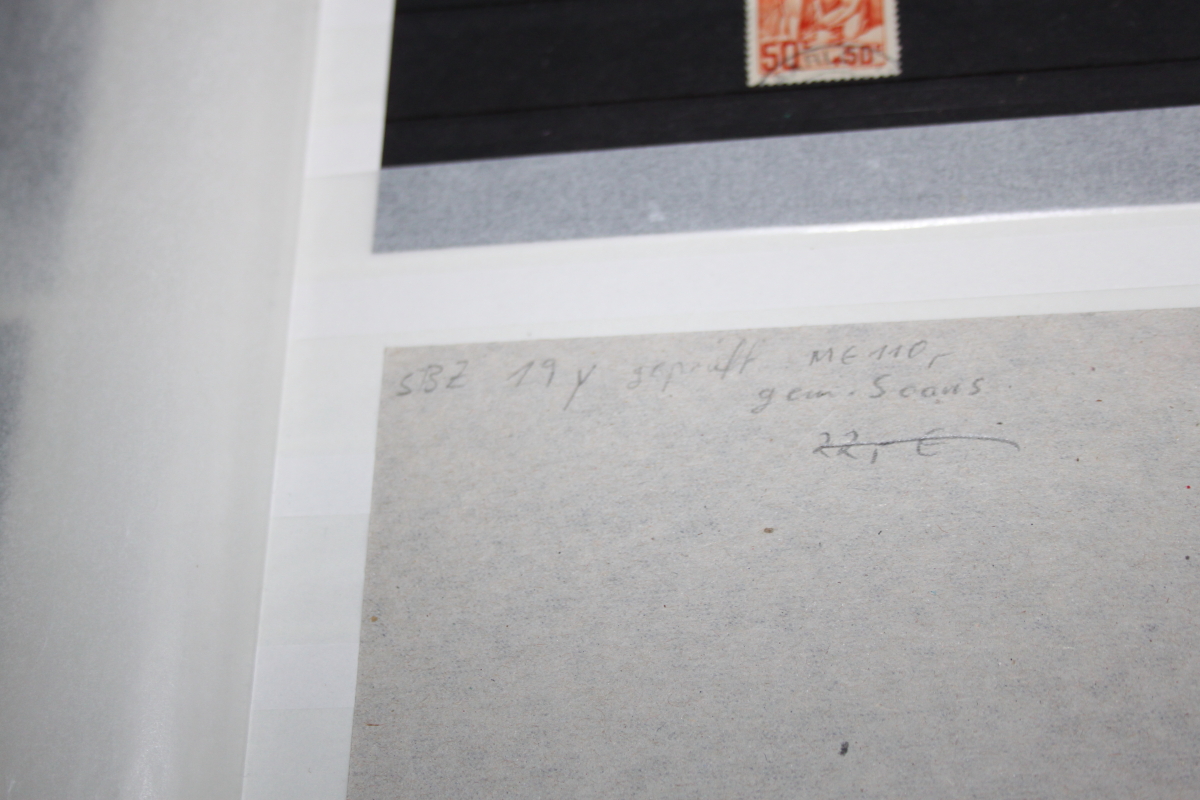 50 +50
SBZ 19y geprüft ME 110,-
gem. Scans
22,- €